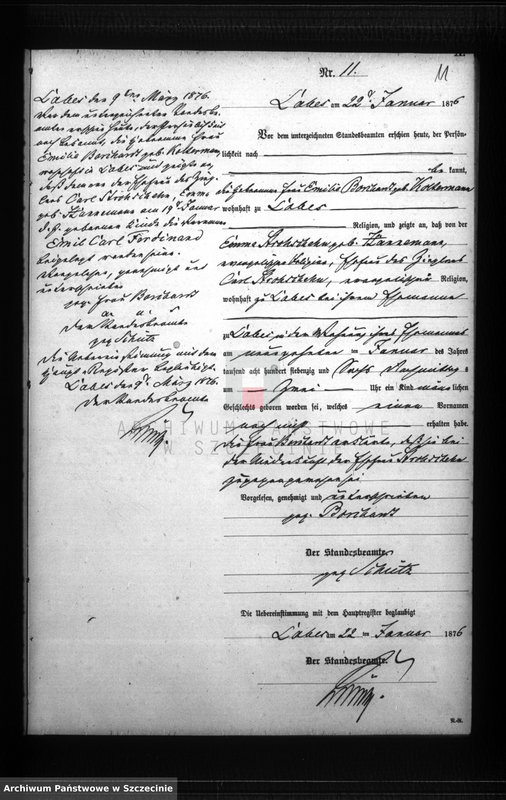 11
Nr. 11.
Labes am 22 Januar 1876
Vor dem unterzeichneten Standesbeamten erschien heute, der Persön-
lichkeit nach
be kannt,
die Hebamme Frau Emilie Borchardt geb. Kottermann
wohnhaft zu Labes
Religion, und zeigte an, daß von der
Emma Strohschehn geb. Hannemann,
evangelischer Religion, Ehefrau des Zieglers
Carl Strohschehn, evangelischer Religion,
wohnhaft zu Labes bei ihrem Ehemanne
zu Labes in der Wohnung ihres Ehemannes
am neunzehnten ten Januar des Jahres
tausend acht hundert siebenzig und Sechs Nachmittags
um Zwei Uhr ein Kind männ lichen
Geschlechts geboren worden sei, welches einen Vornamen
noch nicht erhalten habe.
die Frau Borchardt erklärte, daß sie bei
der Niederkunft der Ehefrau Strohschehn
zugegen gewesen sei
Vorgelesen, genehmigt und unterschrieben
gez. Borchardt
Der Standesbeamte.
gez. Schütz
Die Uebereinstimmung mit dem Hauptregister beglaubigt
Labes am 22 ten Januar 1876
Der Standesbeamte.
Labes den 9ten März 1876.
Vor dem unterzeichneten Standesbe-
amten erschien heute, der Persönlichkeit
nach bekannt, die Hebamme Frau
Emilie Borchardt geb. Kottermann
wohnhaft in Labes und zeigte an,
daß dem von der Ehefrau des Zieg-
lers Carl Strohschehn, Emma
geb. Hannemann am 19t Januar
d. J. geborenen Kinde die Vornamen
Emil Carl Ferdinand
beigelegt worden seien.
Vorgelesen, genehmigt und
unterschrieben
gez. Frau Borchardt
a. u. s.
Der Standesbeamte
gez. Schütz
Die Uebereinstimmung mit dem
Haupt-Register beglaubigt.
Labes den 9t März 1876.
Der Standesbeamte
ARCHIWUM PAŃSTWOWE
W SZCZECINIE
Archiwum Państwowe w Szczecinie